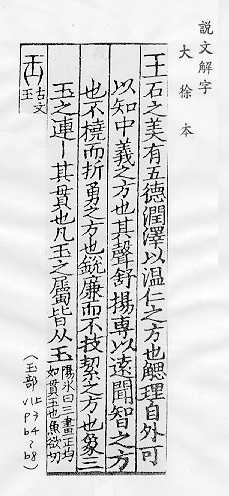 説文解字
大徐本
王石之美有五德潤澤以温仁之方也䚡理自外可
以知中義之方也其聲舒揚專以遠聞智之方
也不橈而折勇之方也銳廉而不技絜之方也象三
玉之連丨其貫也凡玉之屬皆从玉陽冰曰三畫正均
如貫玉也魚欲切
古文
玉
(玉部
P3
b4~
b8)